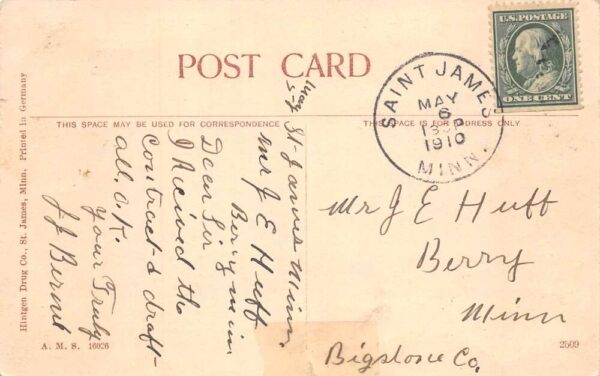 POST CARD
THIS SPACE MAY BE USED FOR CORRESPONDENCE
THIS SPACE IS FOR ADDRESS ONLY
U.S. POSTAGE
ONE CENT
SAINT JAMES
MAY
6
1910
MINN.
May
St-James Minn.
Mr J E Huff
Berry minn
Dear Sir
I Recived the
Contract & draft-
all. O.K.
Your Truly
J J
Mr J E Huff
Berry
Minn
Bigstone Co.
Hintgen Drug Co., St. James, Minn. Printed in Germany
A. M. S. 16026
2509